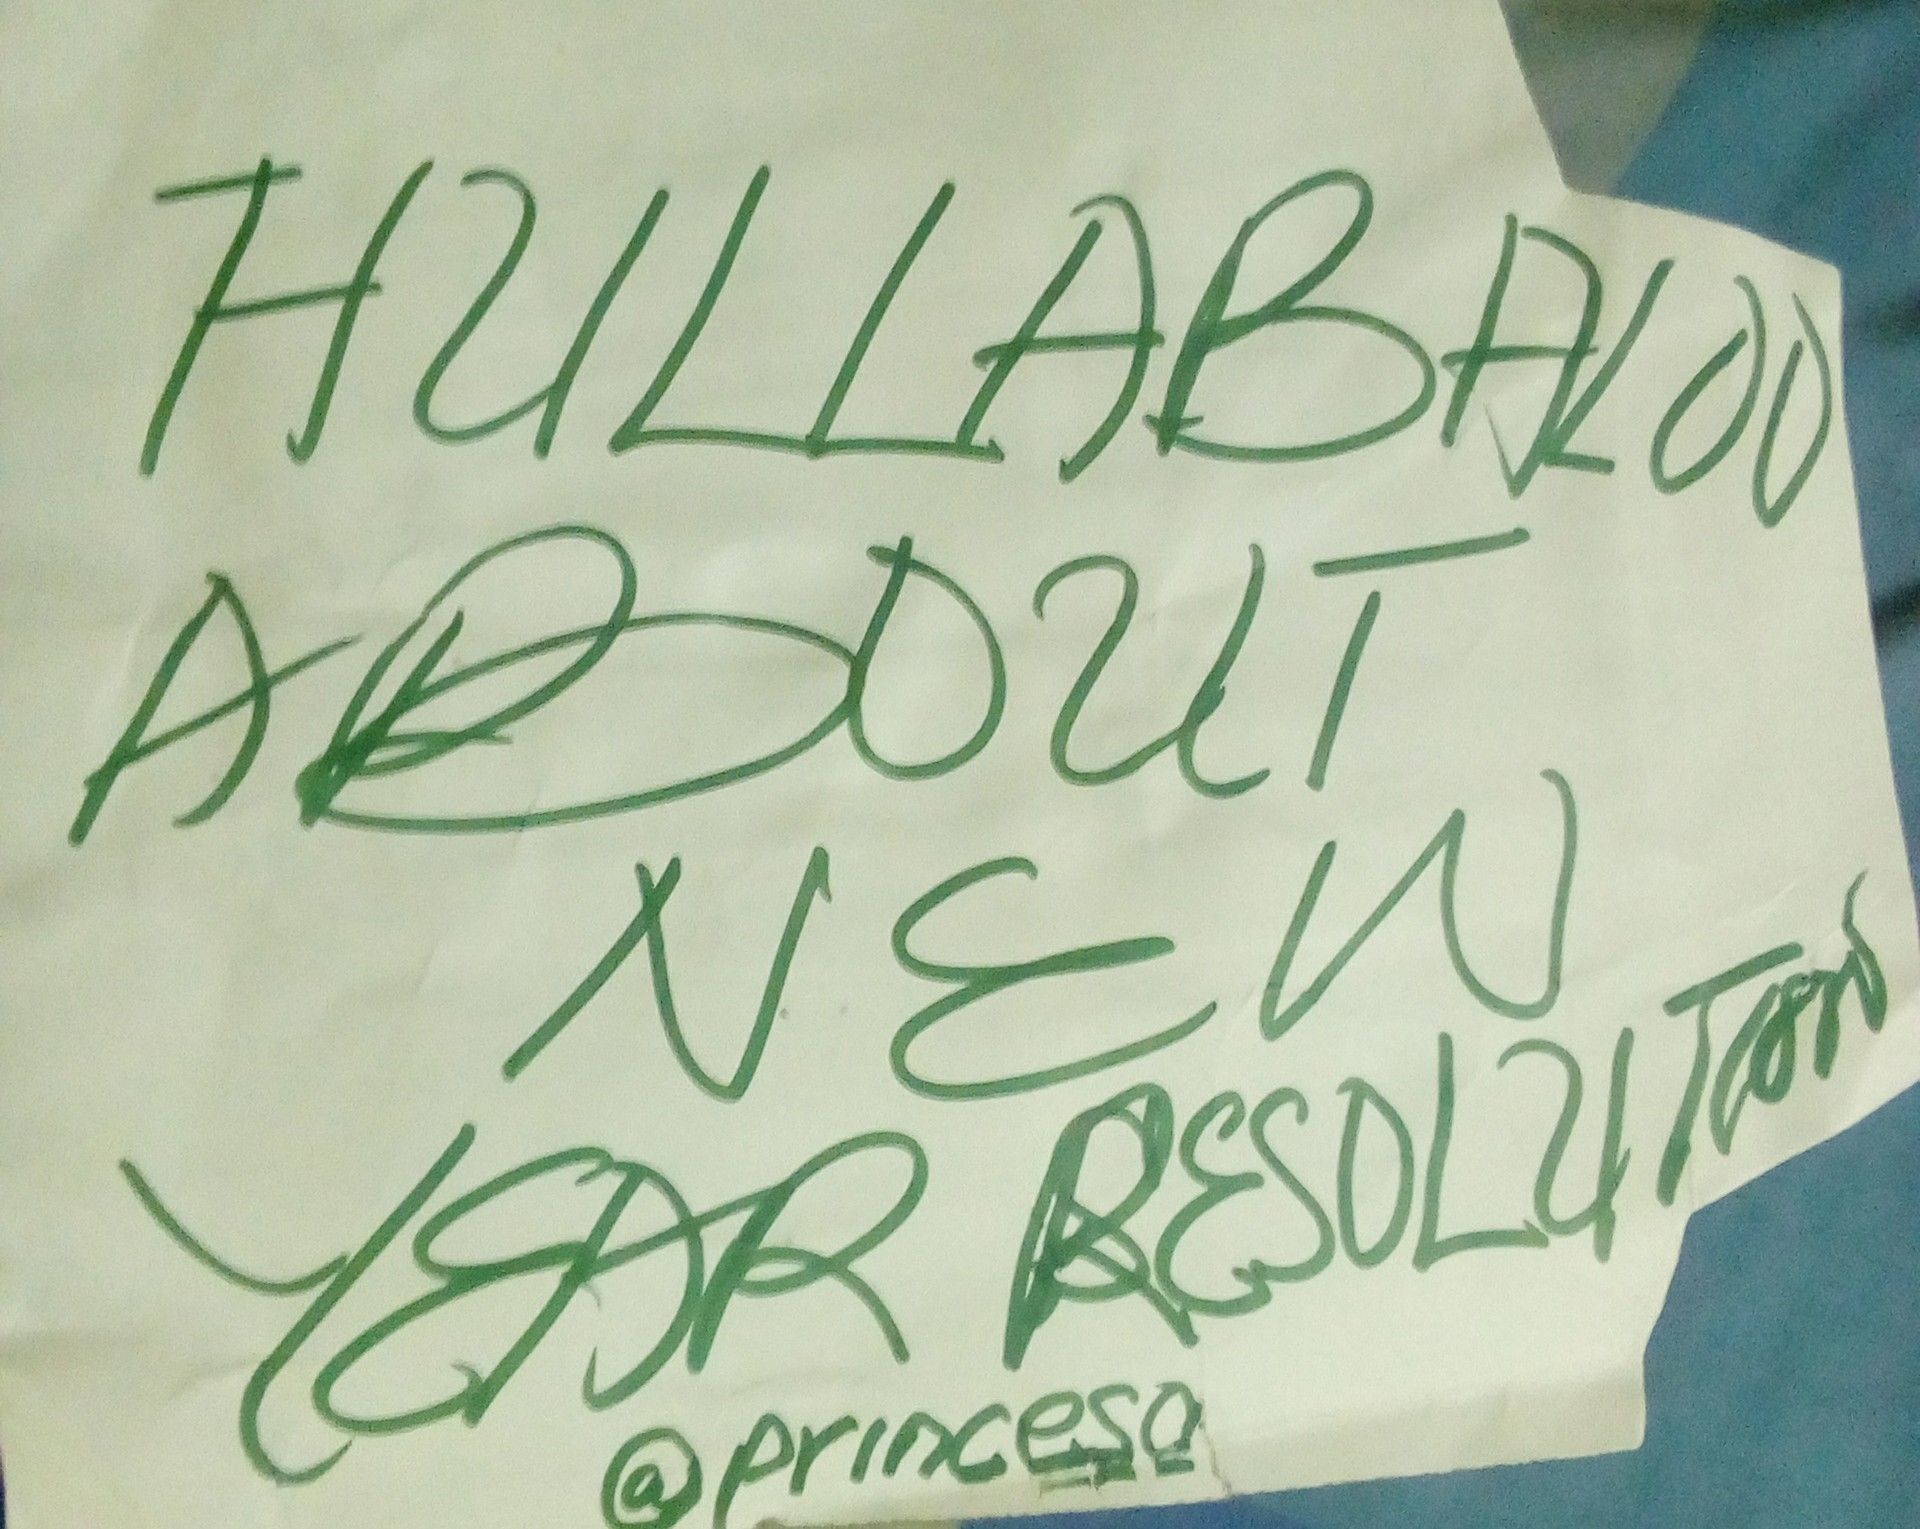 HULLABALOO
ABOUT
NEW
YEAR RESOLUTION
@princesa